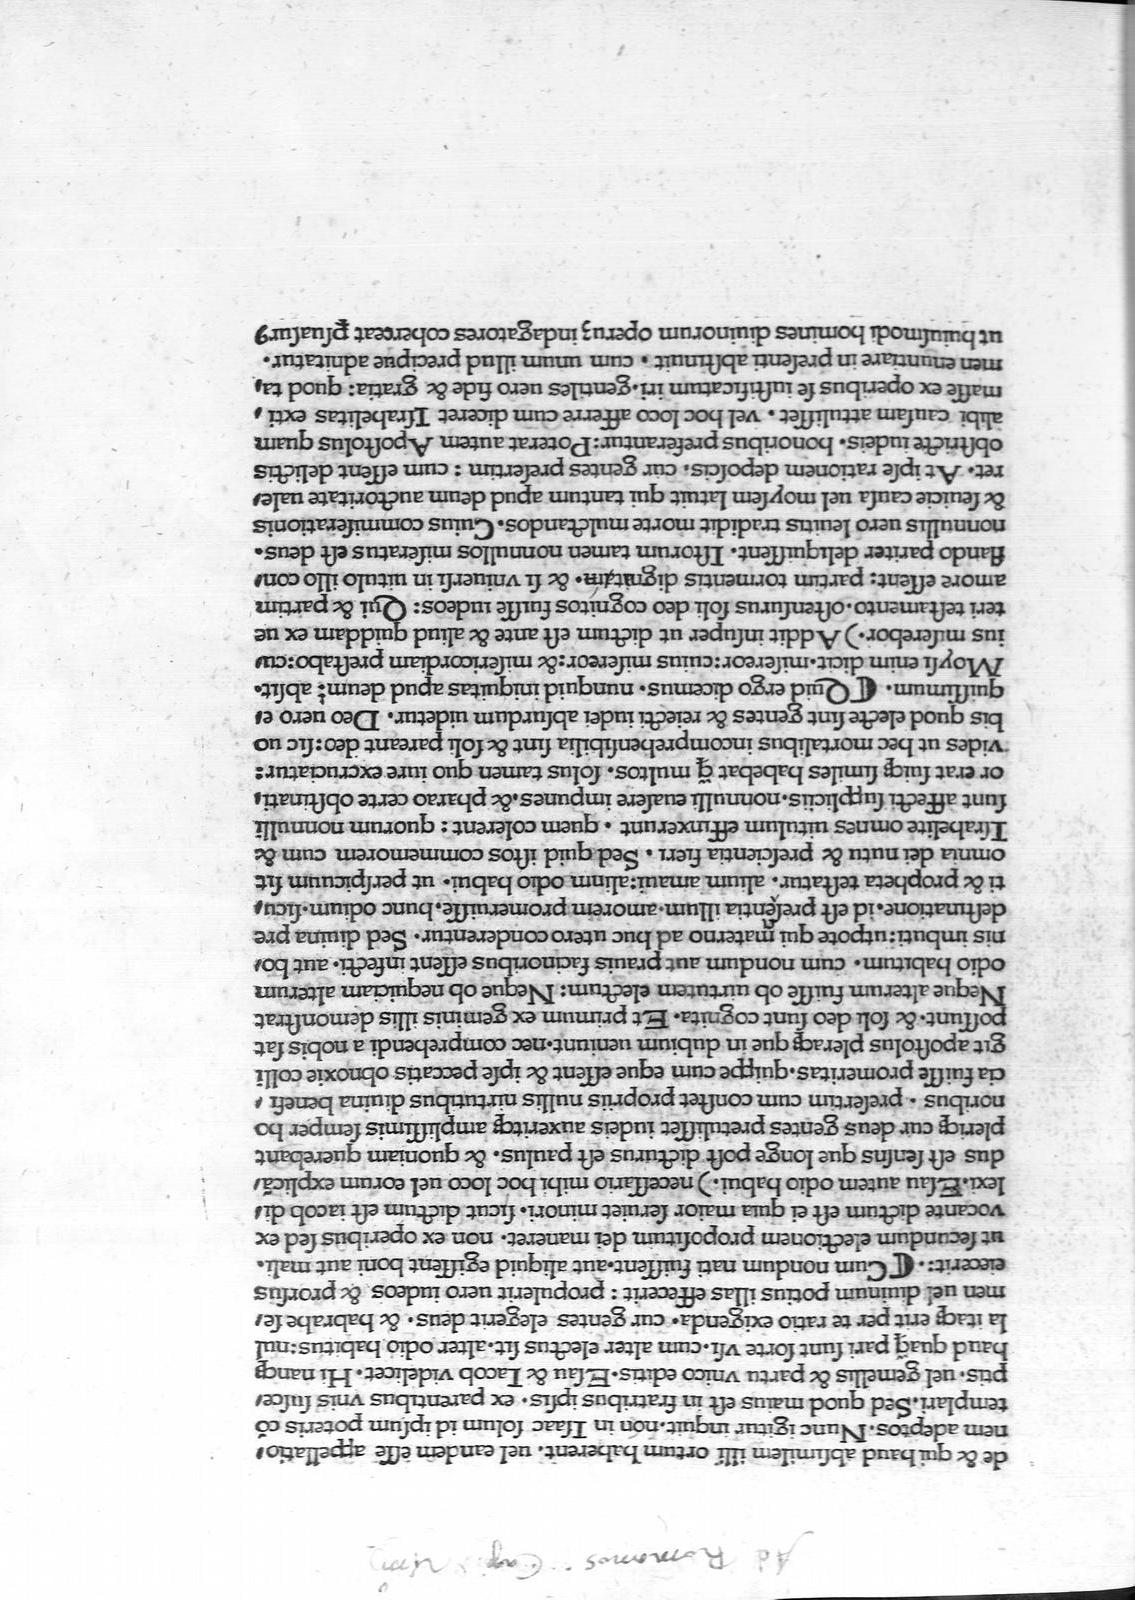 Ad Romanos Cap
de & qui haud absimilem illi ortum haberent. uel eandem esse appellatio,
nem adeptos. Nunc igitur inquit. non in Isaac solum id ipsum poteris cō
templari. Sed quod maius est in fratribus ipsis. ex parentibus vnis susce,
ptis. uel gemellis & partu vnico editis. Esau & Iacob videlicet. Hi nanqꝫ
haud quaqꝫ pari sunt sorte vsi. cum alter electus sit. alter odio habitus: nul
la itaqꝫ erit per te ratio exigenda. cur gentes elegerit deus. & habrahe se,
men uel diuinum potius illas effecerit : propulerit uero iudeos & prorsus
eiecerit:. ℂ Cum nondum nati fuissent. aut aliquid egissent boni aut mali.
ut secundum electionem propositum dei maneret. non ex operibus sed ex
vocante dictum est ei quia maior seruiet minori. sicut dictum est iacob di,
lexi. Esau autem odio habui.) necessario mihi hoc loco uel eorum explicā,
dus est sensus que longe post dicturus est paulus. & quoniam querebant
pleriqꝫ cur deus gentes pretulisset iudeis auxeritqꝫ amplissimis semper ho
noribus . presertim cum constet propriis nullis uirtutibus diuina benefi ,
cia fuisse promeritas. quippe cum eque essent & ipse peccatis obnoxie colli
git apostolus pleraqꝫ que in dubium ueniunt. nec comprehendi a nobis sat
possunt. & soli deo sunt cognita. Et primum ex geminis illis demonstrat
Neque alterum fuisse ob uirtutem electum: Neque ob nequiciam alterum
odio habitum. cum nondum aut prauis facinoribus essent infecti. aut bo,
nis imbuti: utpote qui materno ad huc utero conderentur. Sed diuina pre
destinatione. id est presentia illum. amorem promeruisse. hunc odium. sicu,
ti & propheta testatur. alium amaui: alium odio habui. ut perspicuum sit
omnia dei nutu & prescientia fieri . Sed quid istos commemorem cum &
Israhelite omnes uitulum effinxerunt . quem colerent : quorum nonnulli
sunt affecti suppliciis. nonnulli euasere impunes. & pharao certe obstinati,
or erat suiqꝫ similes habebat qꝫ multos. solus tamen quo iure excruciatur:
vides ut hec mortalibus incomprehensibilia sint & soli pareant deo: sic uo
bis quod electe sint gentes & reiecti iudei absurdum uidetur. Deo uero e,
quissimum. ℂ Quid ergo dicemus. nunquid iniquitas apud deum? absit.
Moysi enim dicit. misereor: cuius misereor: & misericordiam prestabo: cu,
ius miserebor.) Addit insuper ut dictum est ante & aliud quiddam ex ue
teri testamento. ostensurus soli deo cognitos fuisse iudeos: Qui & partim
amore essent: partim tormentis digni. & si vniuersi in uitulo illo con,
flando pariter deliquissent. Istorum tamen nonnullos miseratus est deus.
nonnullis uero leuitis tradidit morte mulctandos. Cuius commiserationis
& seuicie causa uel moysem latuit qui tantum apud deum auctoritate uale,
ret. At ipse rationem deposcis. cur gentes presertim : cum essent delictis
obstricte iudeis. honoribus preferantur: Poterat autem Apostolus quam
alibi causam attulisset . vel hoc loco afferre cum diceret Israhelitas exti ,
masse ex operibus se iustificatum iri. gentiles uero fide & gratia: quod ta,
men enuntiare in presenti abstinuit . cum unum illud precipue adnitatur.
ut huiusmodi homines diuinorum operuꝫ indagatores coherceat ꝑsuasurꝰ